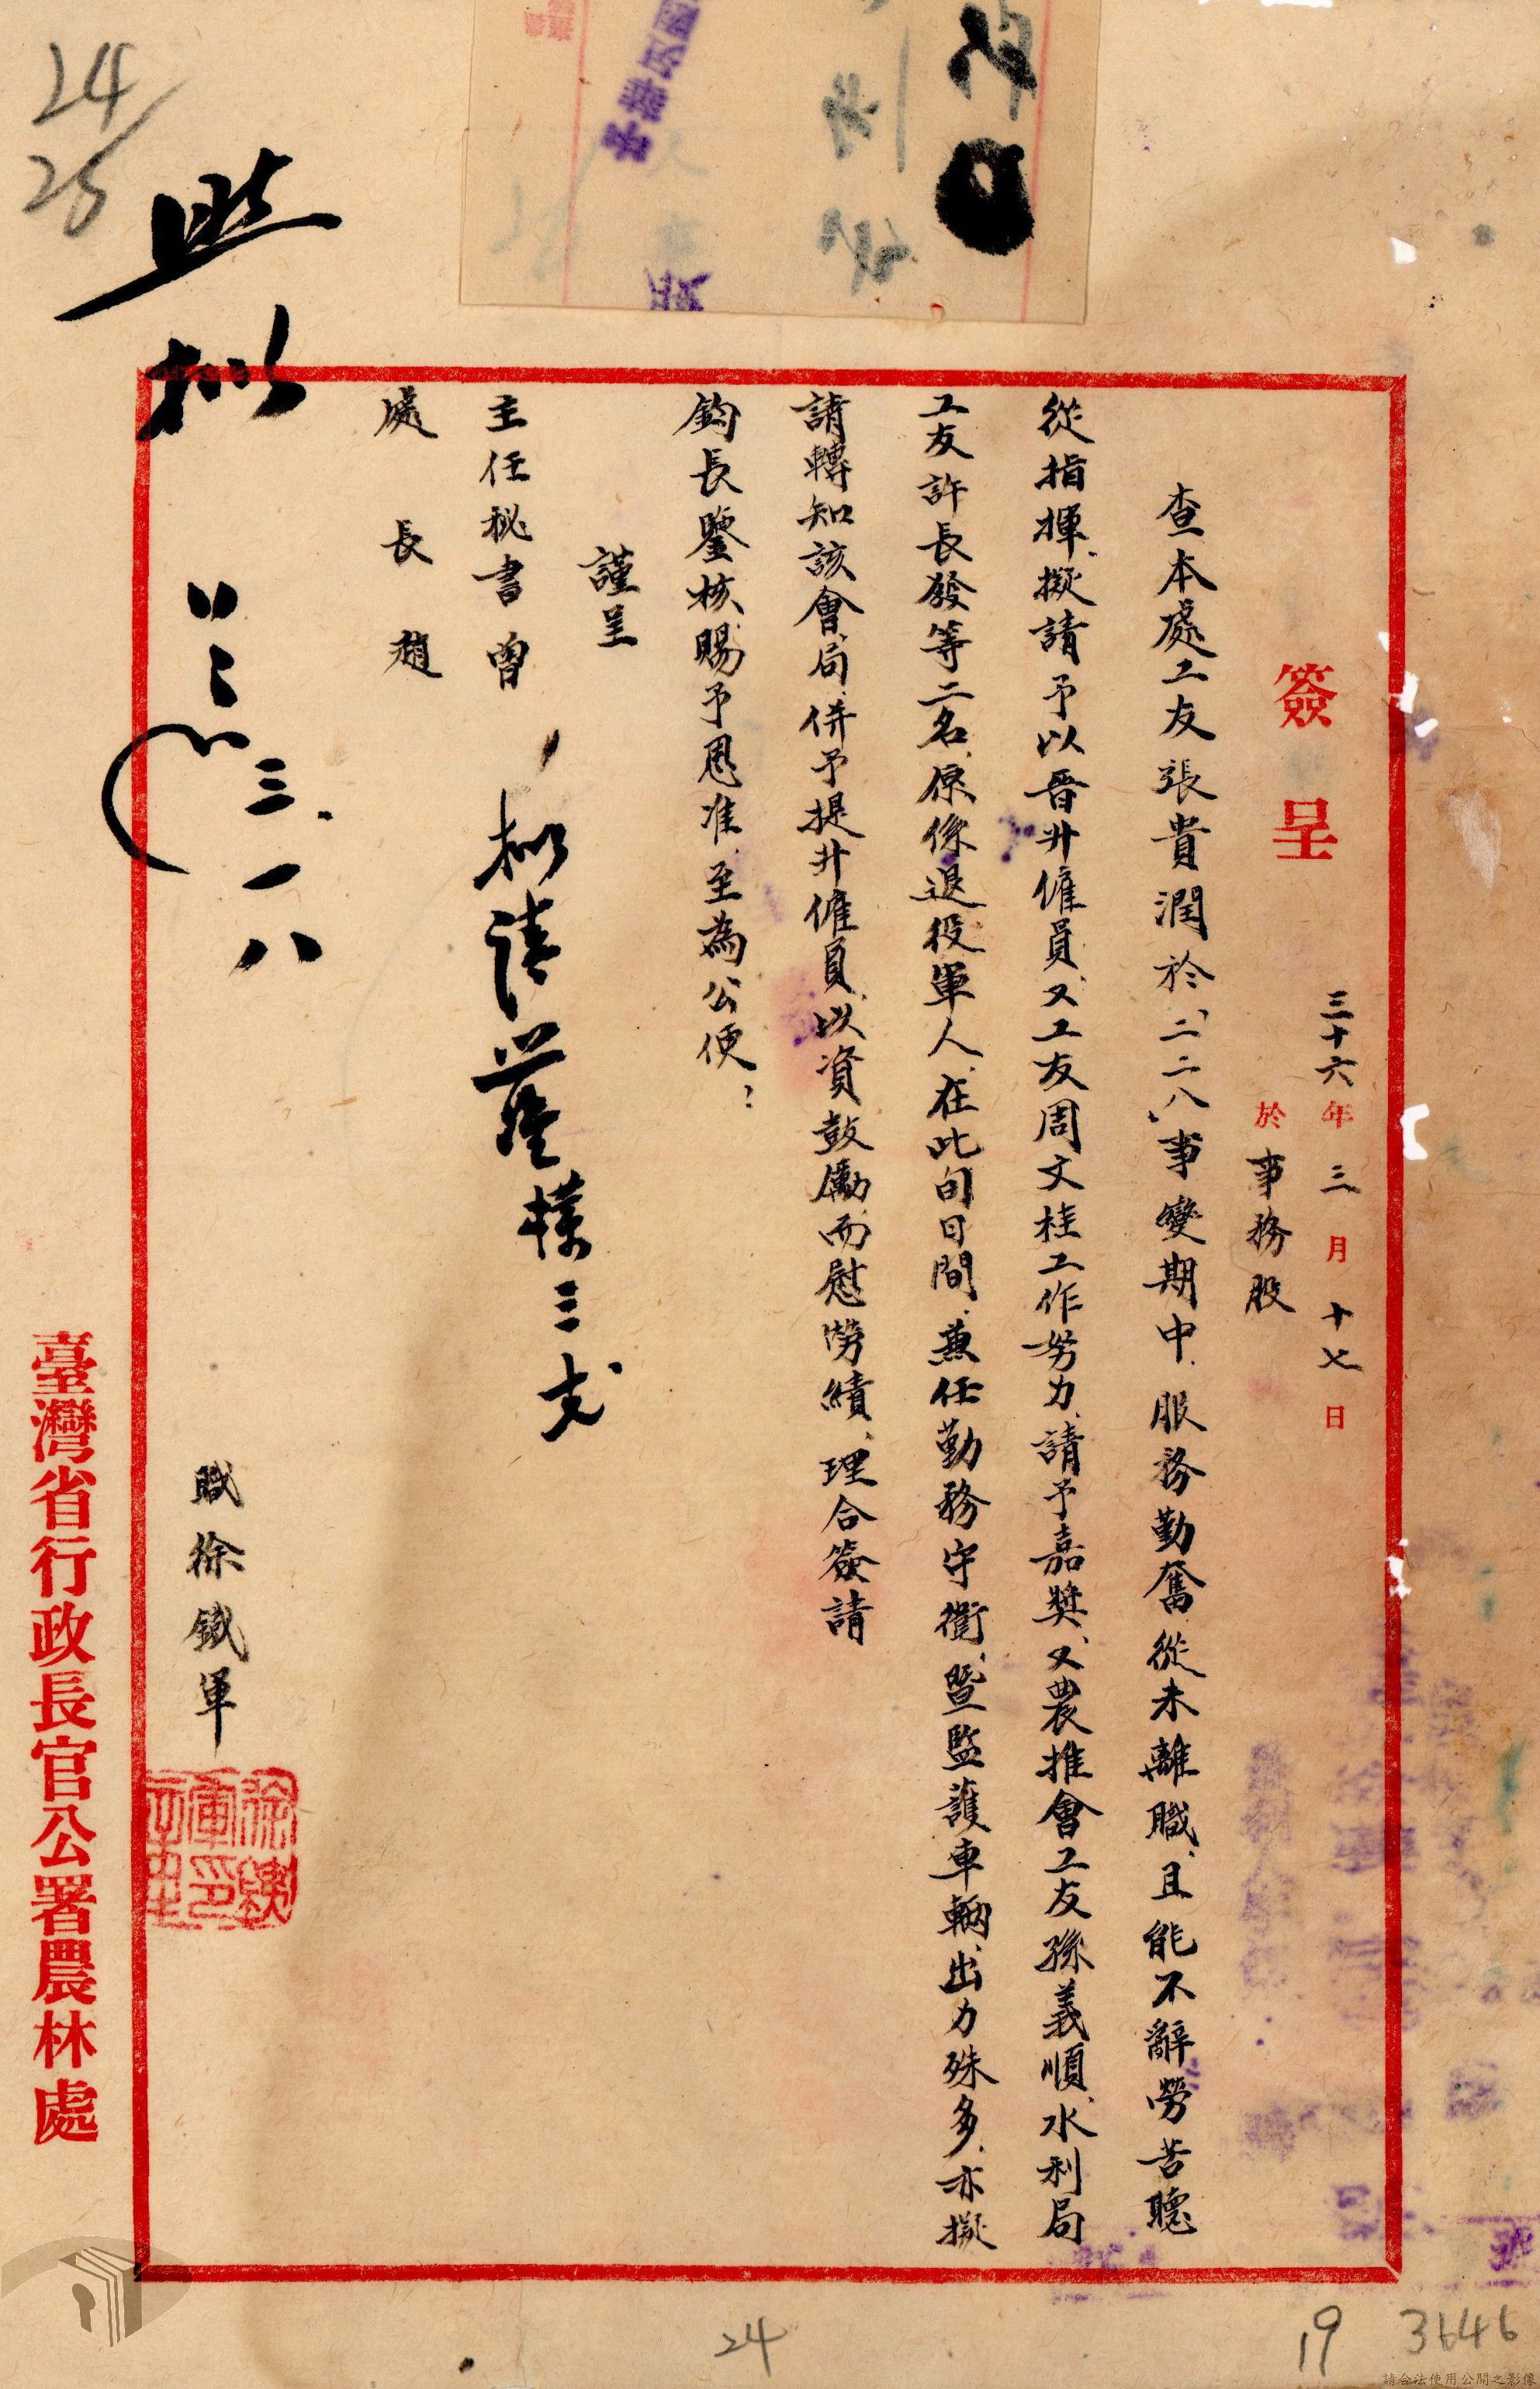 簽呈
三十六年三月十七日
於事務股
查本處工友張貴潤於「二二八」事變期中、服務勤奮、從未離職、且能不辭勞苦聽
從指揮、擬請予以晉升僱員、又工友周文桂工作努力、請予嘉獎、又農推會工友孫義順、水利局
工友許長發等二名、原係退役軍人、在此旬日間、兼任勤務守衛、暨監護車輛、出力殊多、亦擬
請轉知該會、局、併予提升僱員、以資鼓勵、而慰勞績、理合簽請
鈞長鑒核、賜予恩准、至為公便：
謹呈
主任秘書曾
處長趙
擬請
照擬
三.一八
職徐鐵軍
臺灣省行政長官公署農林處
24
25
24
19
3646
請合法使用公開之影像